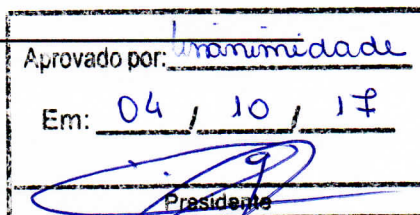 Aprovado por: Unanimidade
Em: 04 / 10 / 17
Presidente